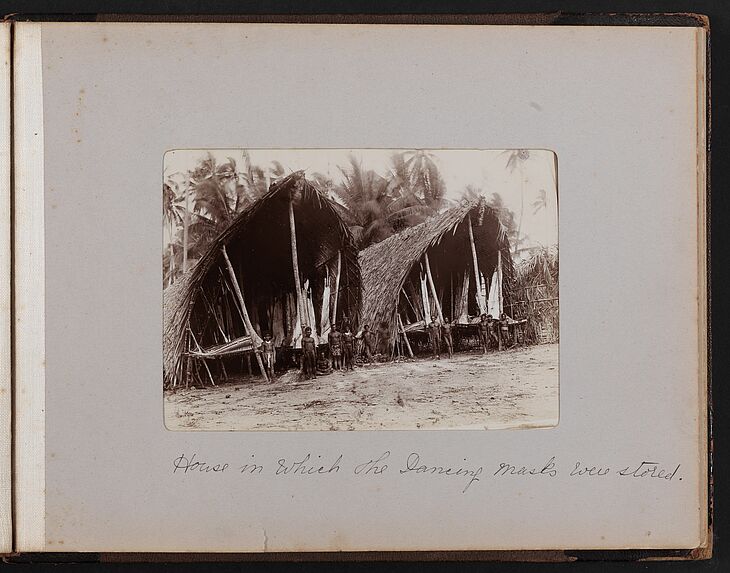 House in which the Dancing masks were stored.